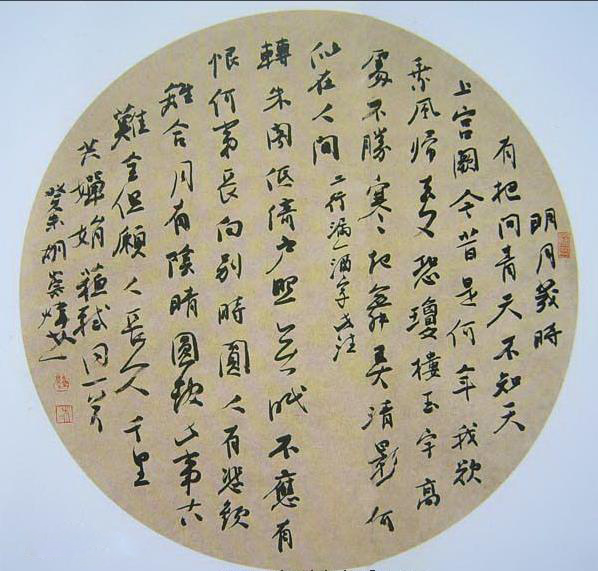 明月幾時
有把問青天不知天
上宫闕今昔是何年我欲
乘風歸去又恐瓊樓玉宇高
處不勝寒起舞弄清影何
似在人间 二行漏一酒字
轉朱阁低绮户照無眠不應有
恨何事長向别時圓人有悲歡
離合月有陰晴圓缺此事古
難全但願人長久千里
共嬋娟 蘇軾
癸未胡崇煒